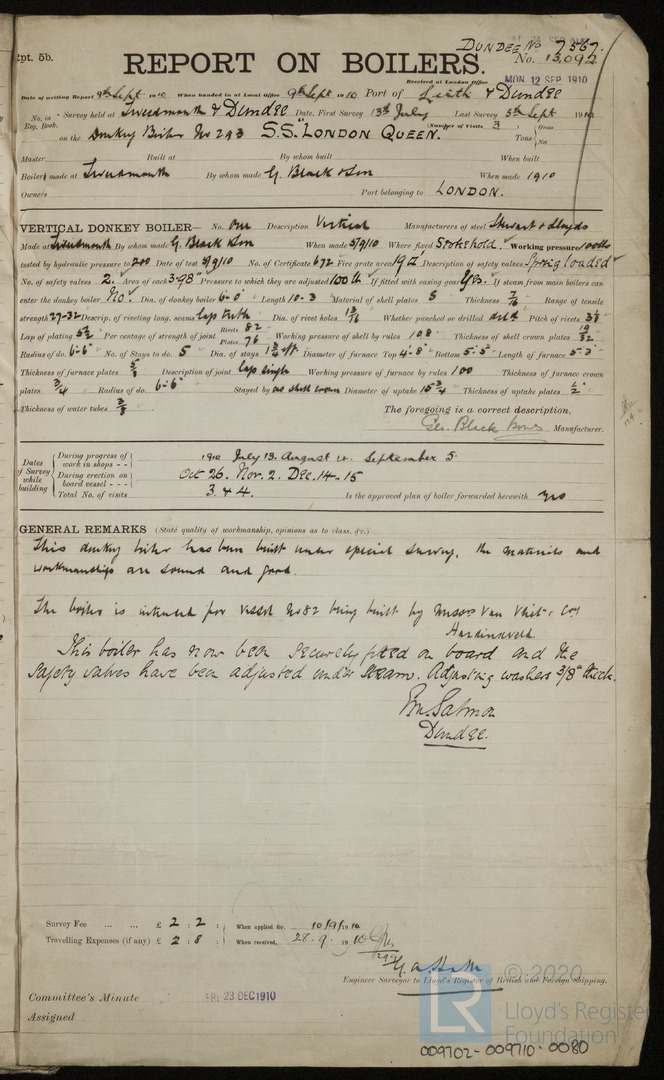 DUNDEE No 7567.
Rpt. 5b.
REPORT ON BOILERS.
No. 13,092
Received at London Office MON 12 SEP 1910
Date of writing Report 9th Sept 1910 When handed in at Local Office 9th Sept 1910 Port of Leith & Dundee
No. in Reg. Book. Survey held at Tweedmouth & Dundee Date, First Survey 13th July Last Survey 5th Sept 1910
(Number of Visits 3)
on the Donkey Boiler No 293 S.S. "LONDON QUEEN." Tons Gross Net
Master Built at By whom built When built
Boilers made at Tweedmouth By whom made G. Black & Son When made 1910
Owners Port belonging to LONDON.
VERTICAL DONKEY BOILER— No. One Description Vertical Manufacturers of steel Stewart & Lloyds
Made at Tweedmouth By whom made G. Black & Son When made 5/9/10 Where fixed Stokehold. Working pressure 100 lbs
tested by hydraulic pressure to 200 Date of test 5/9/10 No. of Certificate 672 Fire grate area 19 Description of safety valves Spring loaded
No. of safety valves 2. Area of each 3.98" Pressure to which they are adjusted 100 lb If fitted with easing gear Yes. If steam from main boilers can
enter the donkey boiler No. Dia. of donkey boiler 6-0" Length 10-3 Material of shell plates S Thickness 7/16 Range of tensile
strength 27-32 Descrip. of riveting long. seams lap treble Dia. of rivet holes 13/16 Whether punched or drilled Pitch of rivets 3 1/8
Lap of plating 5 1/2 Per centage of strength of joint Rivets 82 Plates 76 Working pressure of shell by rules 108 Thickness of shell crown plates 19/32
Radius of do. 6-6" No. of Stays to do. 5 Dia. of stays 1 3/4 eff Diameter of furnace Top 4-8" Bottom 5-5" Length of furnace 5-3"
Thickness of furnace plates 5/8 Description of joint Lap single Working pressure of furnace by rules 100 Thickness of furnace crown
plates 3/4 Radius of do. 6-6" Stayed by as shell crown Diameter of uptake 15 3/4 Thickness of uptake plates 1/2"
Thickness of water tubes 3/8
The foregoing is a correct description,
Geo. Black & Sons Manufacturer.
Dates of Survey while building
During progress of work in shops - - 1910 July 13. August 12. September 5
During erection on board vessel - - - Oct 26. Nov. 2. Dec. 14. 15
Total No. of visits 3. & 4. Is the approved plan of boiler forwarded herewith yes
GENERAL REMARKS (State quality of workmanship, opinions as to class, &c.)
This donkey boiler has been built under special survey, the materials and
workmanship are sound and good.
The boiler is intended for vessel No 82 being built by Messrs Van Vliet & Coy
Hardinxveld.
This boiler has now been securely fitted on board and the
safety valves have been adjusted under steam. Adjusting washers 3/8" thick.
Salmon
Dundee.
Survey Fee ... ... £ 2 : 2 : When applied for, 10/9/1910
Travelling Expenses (if any) £ 2 : 8 : When received, 28.9.1910
Engineer Surveyor to Lloyd's Register of British and Foreign Shipping.
Committee's Minute FRI. 23 DEC 1910
Assigned
© 2020
LR
Lloyd's Register
Foundation
009702-009710-0080